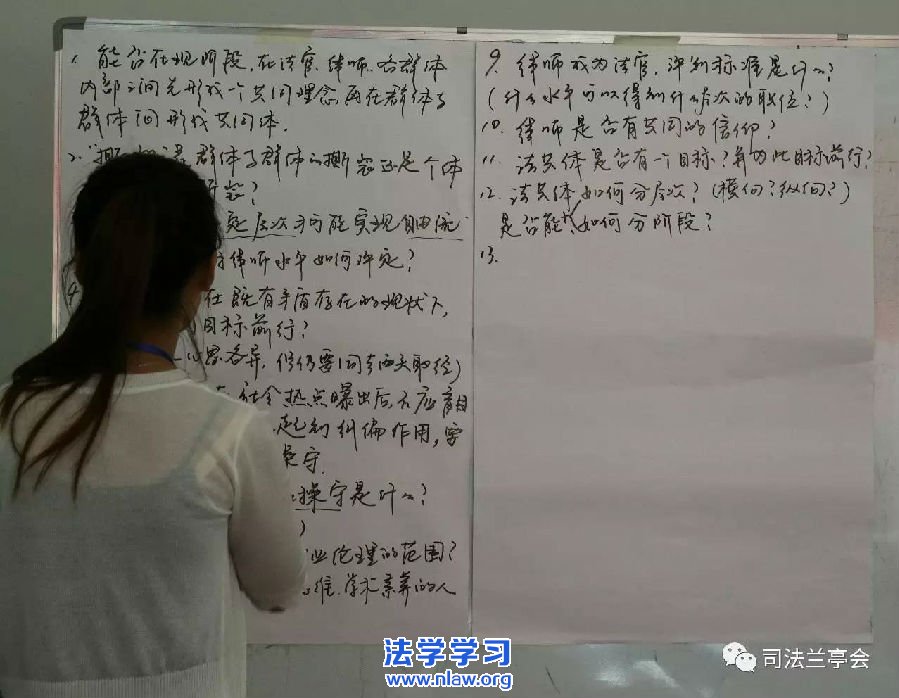 1. 能否在现阶段,在法官、律师、各群体
内部之间先形成一个共同理念,再在群体与
群体间形成共同体.
2. 群体与群体的撕裂还是个体
层次才可能实现自由流
律师水平如何评定?
在既有矛盾存在的现状下,
目标前行?
心思各异,但仍要同去西天取经)
社会热点曝出后,不应盲目
起到纠偏作用,要
操守是什么?
)
业伦理的范围?
维、学术素养的人
9. 律师成为法官,评判标准是什么?
(什么水平可以得到什么层次的职位?)
10. 律师是否有共同的信仰?
11. 法共体是否有一个目标?并为此目标前行?
12. 法共体如何分层次?(横向?纵向?)
是否能、如何分阶段?
13.
法学学习
www.nlaw.org
司法兰亭会